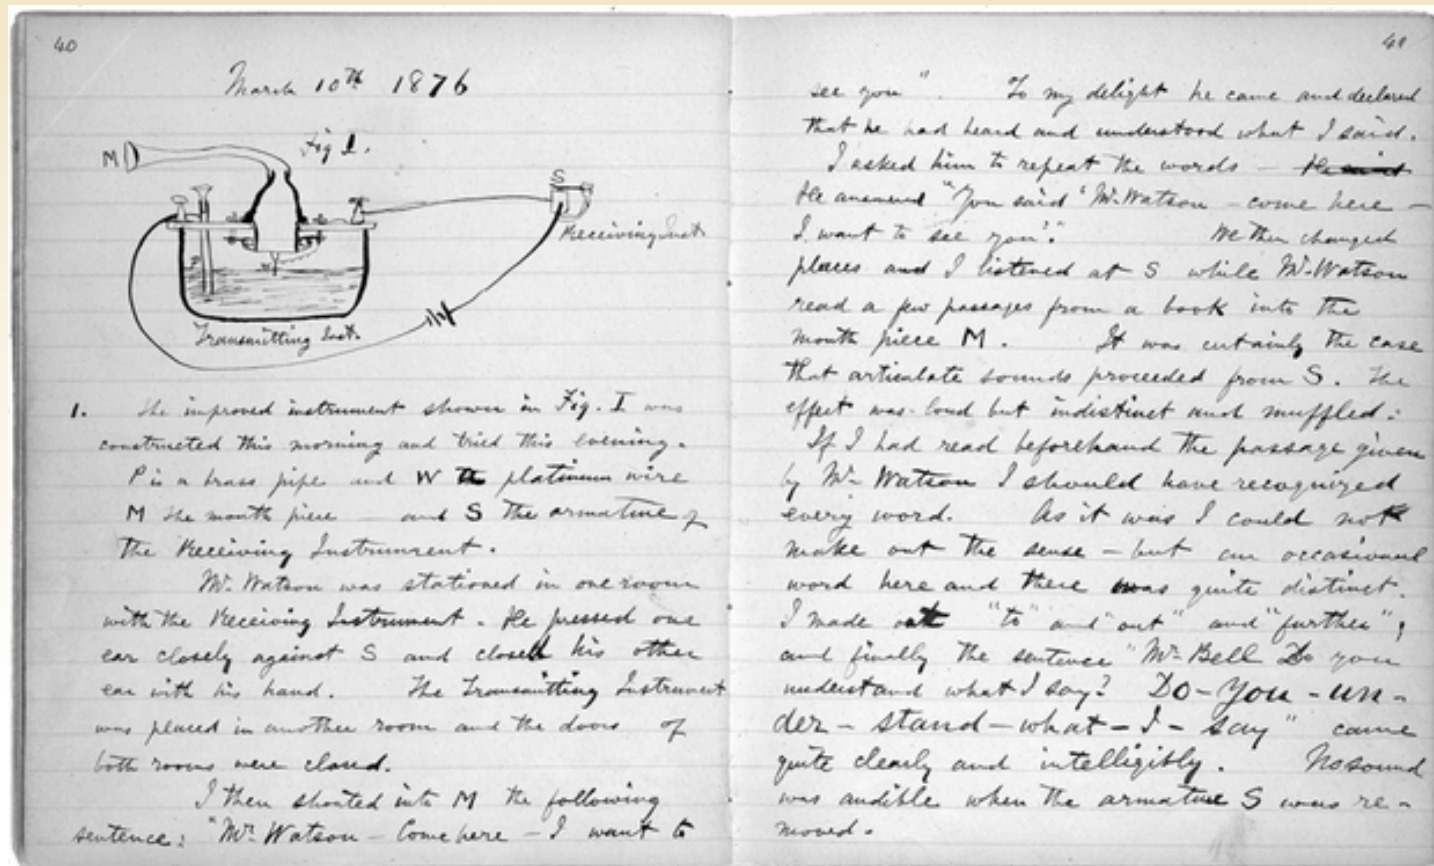 40
March 10th 1876
Fig 1.
M
S
Receiving Inst.
Transmitting Inst.
1. The improved instrument shown in Fig. I was
constructed this morning and tried this evening.
P is a brass pipe and W the platinum wire
M the mouth piece — and S the armature of
the Receiving Instrument.
Mr. Watson was stationed in one room
with the Receiving Instrument. He pressed one
ear closely against S and closed his other
ear with his hand. The Transmitting Instrument
was placed in another room and the doors of
both rooms were closed.
I then shouted into M the following
sentence: "Mr. Watson – Come here – I want to
41
see you". To my delight he came and declared
that he had heard and understood what I said.
I asked him to repeat the words — He said
He answered "You said 'Mr. Watson – come here –
I want to see you'." We then changed
places and I listened at S while Mr. Watson
read a few passages from a book into the
mouth piece M. It was certainly the case
that articulate sounds proceeded from S. The
effect was loud but indistinct and muffled.
If I had read beforehand the passage given
by Mr. Watson I should have recognized
every word. As it was I could not
make out the sense – but an occasional
word here and there was quite distinct.
I made out "to" and "out" and "further";
and finally the sentence "Mr. Bell Do you
understand what I say? Do – you – un –
der – stand – what – I – say" came
quite clearly and intelligibly. No sound
was audible when the armature S was re –
moved.